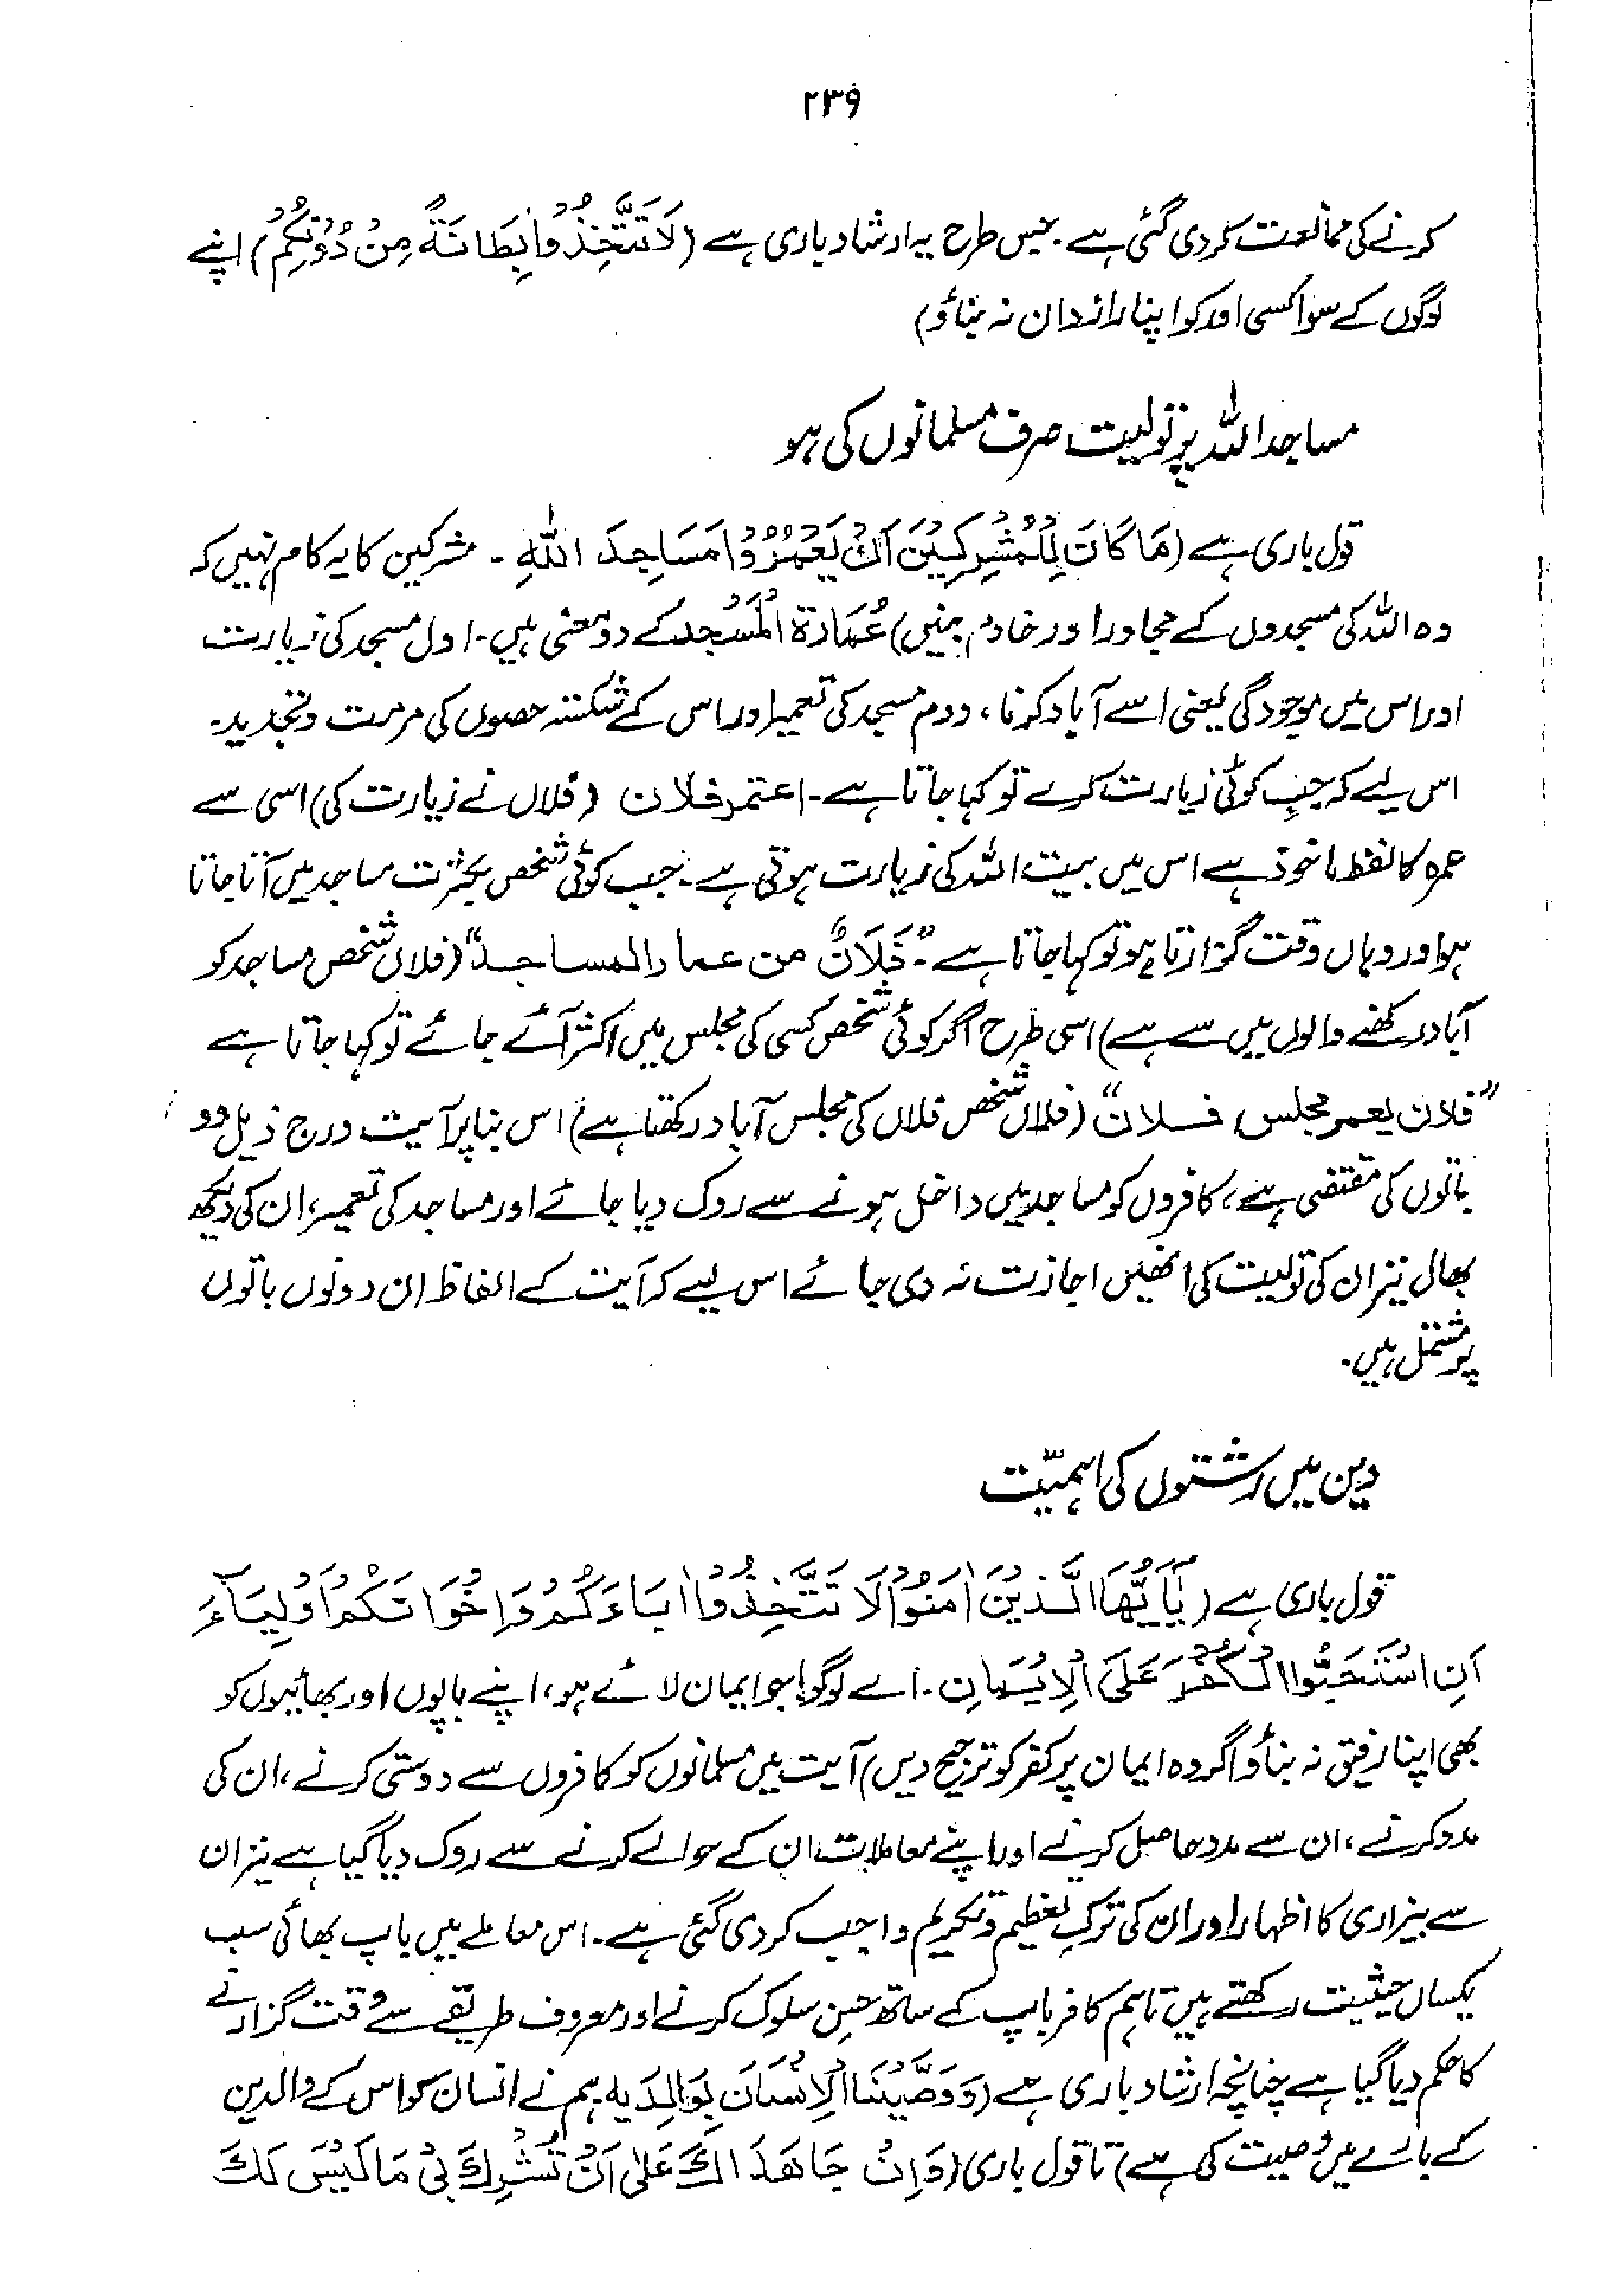 ۲۳۹
کرنے کی ممانعت کردی گئی ہے۔ جس طرح یہ ارشاد باری ہے (لَا تَتَّخِذُوْا بِطَانَةً مِنْ دُوْنِكُمْ) اپنے
لوگوں کے سوا کسی اور کو اپنا رازدان نہ بناؤ)
مساجد اللہ پر تولیت صرف مسلمانوں کی ہو
قول باری ہے (مَا كَانَ لِلْمُشْرِكِيْنَ اَنْ يَعْمُرُوْا مَسَاجِدَ اللّٰهِ۔ مشرکین کا یہ کام نہیں کہ
وہ اللہ کی مسجدوں کے مجاور اور خادم بنیں) عُمَارَة الْمَسْجِد کے دو معنی ہیں۔ اول مسجد کی زیارت
اور اس میں موجودگی یعنی اسے آباد کرنا، دوم مسجد کی تعمیر اور اس کے شکستہ حصوں کی مرمت و تجدید۔
اس لیے کہ جب کوئی زیارت کرے تو کہا جاتا ہے۔ اعتمر فلان (فلاں نے زیارت کی) اسی سے
عمرہ کا لفظ ماخوذ ہے اس میں بیت اللہ کی زیارت ہوتی ہے۔ جب کوئی شخص بکثرت مساجد میں آتا جاتا
ہو اور وہاں وقت گزارتا ہو تو کہا جاتا ہے۔ "فُلَانٌ من عمار المساجد" (فلاں شخص مساجد کو
آباد رکھنے والوں میں سے ہے) اسی طرح اگر کوئی شخص کسی کی مجلس میں اکثر آئے جائے تو کہا جاتا ہے
"فلان یعمر مجلس فلان" (فلاں شخص فلاں کی مجلس آباد رکھتا ہے) اس بنا پر آیت درج ذیل دو
باتوں کی مقتضی ہے، کافروں کو مساجد میں داخل ہونے سے روک دیا جائے اور مساجد کی تعمیر، ان کی دیکھ
بھال نیز ان کی تولیت کی انھیں اجازت نہ دی جائے اس لیے کہ آیت کے الفاظ ان دونوں باتوں
پر مشتمل ہیں۔
دین میں رشتوں کی اہمیّت
قول باری ہے (يٰٓاَيُّهَا الَّذِيْنَ اٰمَنُوْا لَا تَتَّخِذُوْا اٰبَاءَكُمْ وَاِخْوَانَكُمْ اَوْلِيَآءَ
اَنِ اسْتَحَبُّوا الْكُفْرَ عَلَى الْاِيْمَانِ۔ اے لوگو! جو ایمان لائے ہو، اپنے باپوں اور بھائیوں کو
بھی اپنا رفیق نہ بناؤ اگر وہ ایمان پر کفر کو ترجیح دیں) آیت میں مسلمانوں کو کافروں سے دوستی کرنے، ان کی
مدد کرنے، ان سے مدد حاصل کرنے اور اپنے معاملات ان کے حوالے کرنے سے روک دیا گیا ہے نیز ان
سے بیزاری کا اظہار اور ان کی ترکِ تعظیم و تکریم واجب کردی گئی ہے۔ اس معاملے میں باپ بھائی سب
یکساں حیثیت رکھتے ہیں تاہم کافر باپ کے ساتھ حسن سلوک کرنے اور معروف طریقے سے وقت گزارنے
کا حکم دیا گیا ہے چنانچہ ارشاد باری ہے (وَوَصَّيْنَا الْاِنْسَانَ بِوَالِدَيْهِ ہم نے انسان کو اس کے والدین
کے بارے میں وصیت کی ہے) تا قول باری (وَاِنْ جَاهَدَاكَ عَلٰى اَنْ تُشْرِكَ بِيْ مَا لَيْسَ لَكَ